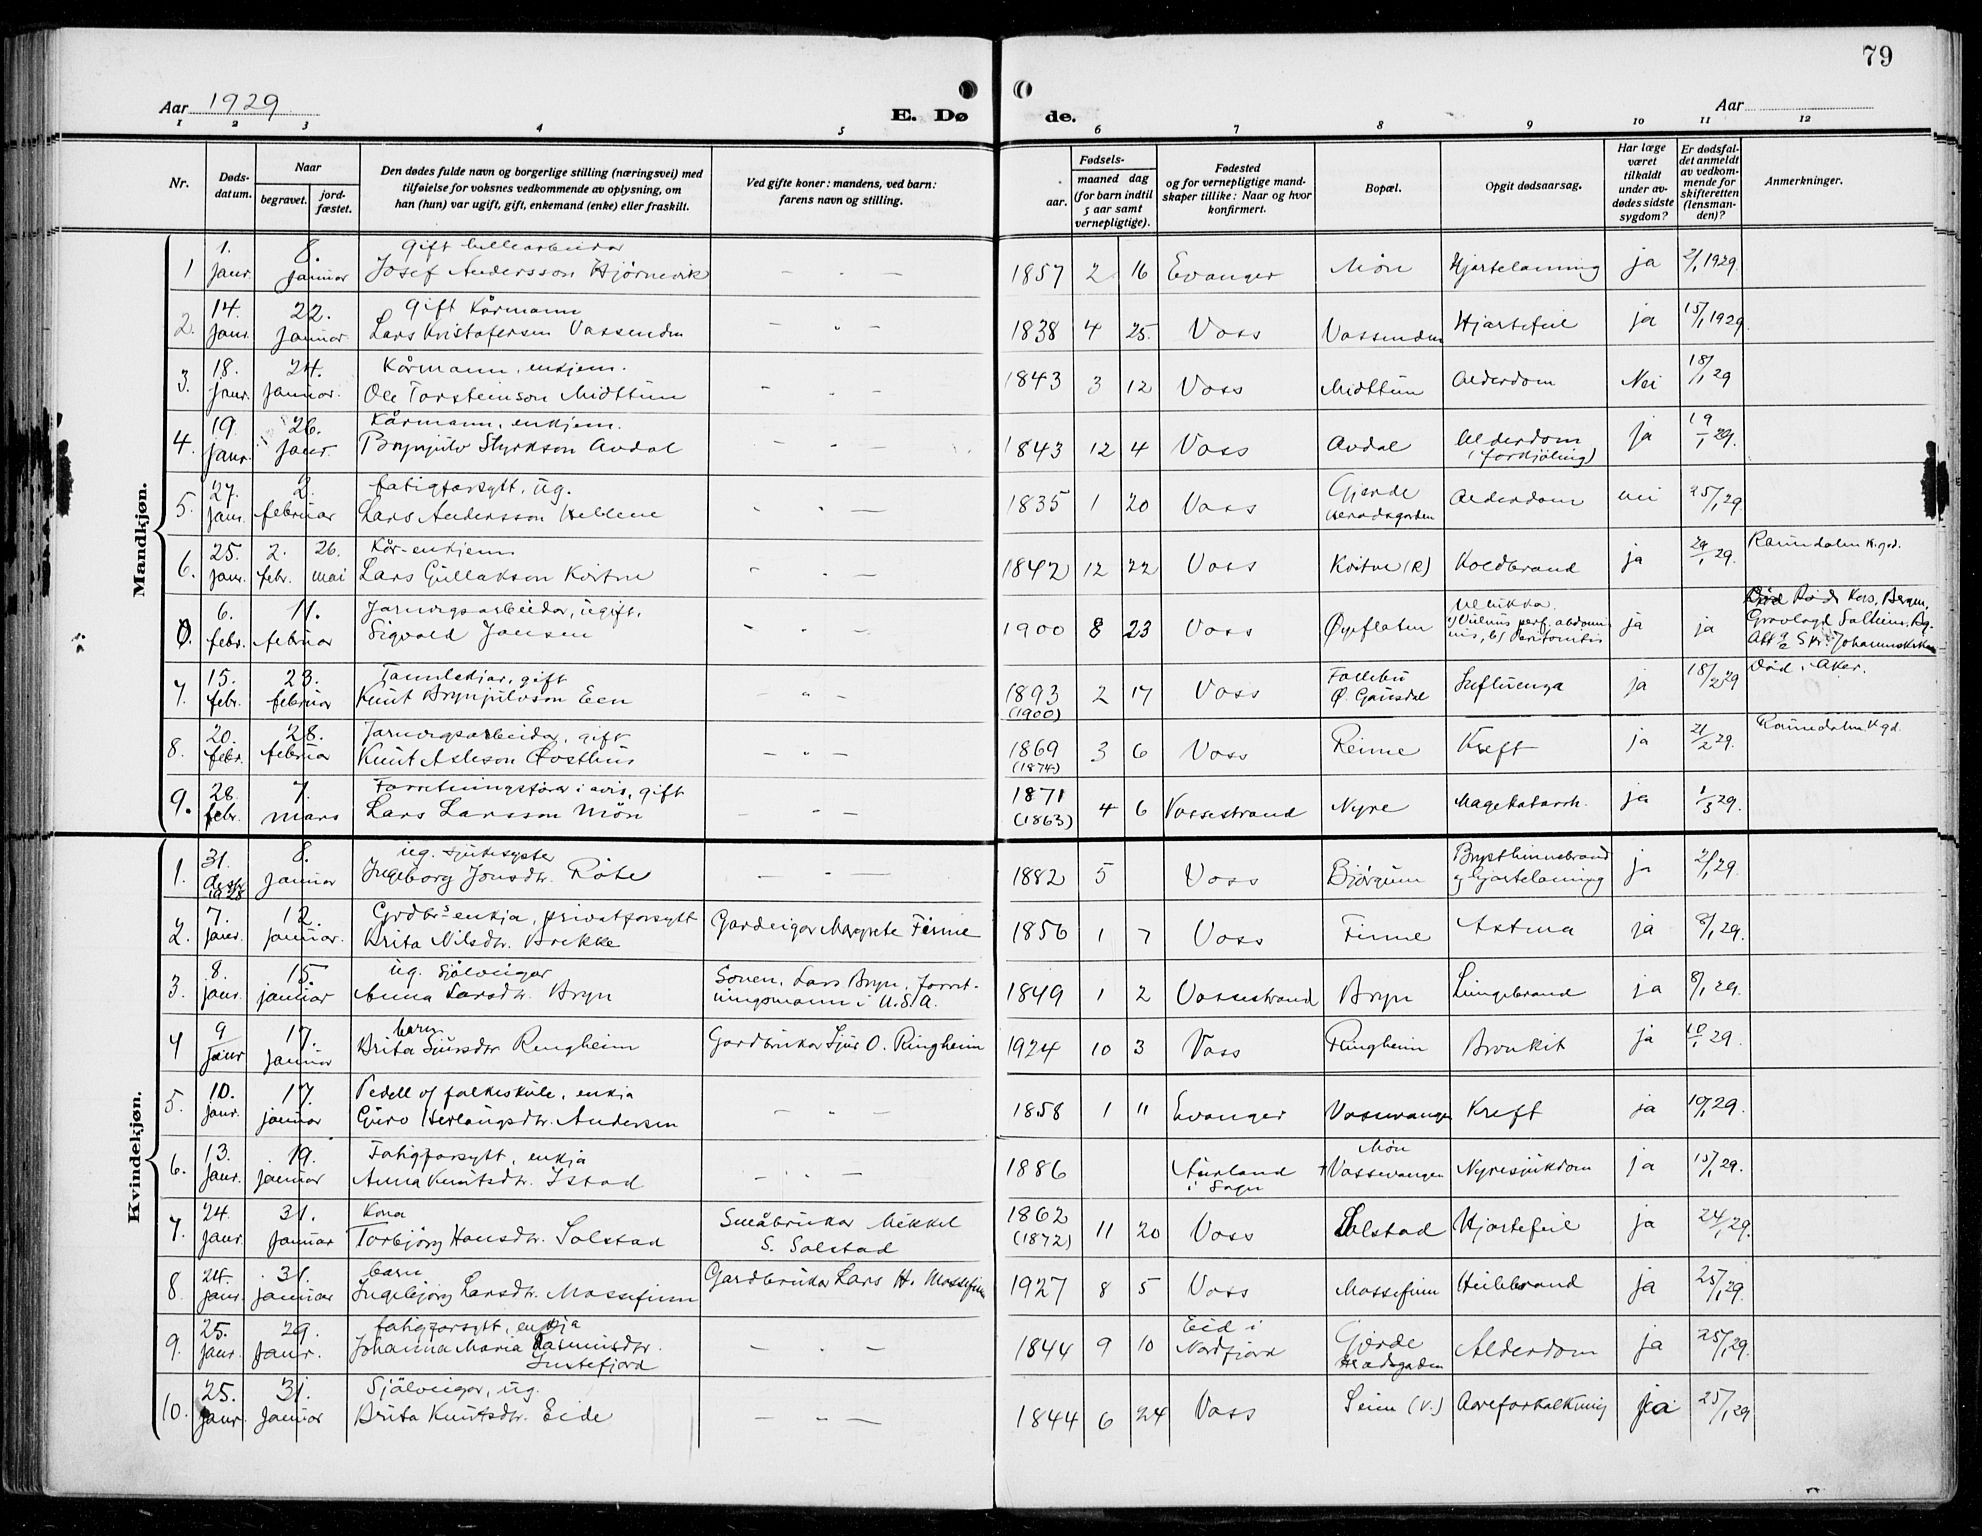 79
Aar 1929
E. Døde.
Aar
1 2 3 4 5 6 7 8 9 10 11 12
Nr.
Døds-datum.
Naar
begravet.
jord-fæstet.
Den dødes fulde navn og borgerlige stilling (næringsvei) med
tilføielse for voksnes vedkommende av oplysning, om
han (hun) var ugift, gift, enkemand (enke) eller fraskilt.
Ved gifte koner: mandens, ved barn:
farens navn og stilling.
Fødsels-
aar.
maaned dag
(for barn indtil
5 aar samt
vernepligtige).
Fødested
og for vernepligtige mand-
skaper tillike: Naar og hvor
konfirmert.
Bopæl.
Opgit dødsaarsag.
Har læge
været
tilkaldt
under av-
dødes sidste
sygdom?
Er dødsfal-
det anmeldt
av vedkom-
mende for
skifteretten
(lensman-
den)?
Anmerkninger.
Mandkjøn.
1 1. Janr. 8. Januar Gift
Josef Andersson Hjørnevik — " — 1857 2 16 Evanger Møn Hjartelamning ja 2/1 1929.
2. 14. Janr. 22. Januar Gift Kårmann
Lars Kristofersen Vassenden — " — 1838 4 25. Voss Vassenden Hjartefeil ja 15/1 1929.
3. 18. Janr. 24. Januar. Kårmann, enkjem.
Ole Torsteinson Midttun — " — 1843 3 12 Voss Midttun Alderdom Nei 18/1 29
4. 19. Janr. 26. Janr. Kårmann, enkjem.
Brynjulv Styrkson Avdal — " — 1843 12 4 Voss Avdal Alderdom (forkjøling) ja 19/1 29.
5. 27. Janr. 2. februar fatigforsytt, ug.
Lars Andersson Hellene — " — 1835 1 20 Voss Gjerde Heradsgarden Alderdom nei 25/1 29.
6. 25. Janr. 2. febr. 26. mai Kår-enkjem
Lars Gullakson Kvitne — " — 1842 12 22 Voss Kvitne (R) Koldbrand ja 29/1 29. Raundalen K.gd.
0. 6. febr. 11. februar Jarnvegsarbeidar, ugift.
Sigvald Jansen — " — 1900 8 23 Voss Øyeflaten Ulukka. a) Vulnus perf. abdominis, b) Peritonitis ja ja Død Røde Kors, Bergen,
Gravlagd Solheim,
Johanneskirken
7. 15. febr. 23. februar Tannlækjar, gift
Knut Brynjulvson Een — " — 1893 (1900) 2 17 Voss Follebu Ø. Gausdal Influenza ja 18/2 29 Død i Aker.
8. 20. febr. 28. februar Jarnvegsarbeidar, gift
Knut Asleson Øvsthus — " — 1869 (1874) 3 6 Voss Reime Kreft ja 21/2 29. Raundalen K.gd.
9. 28. febr. 7. mars Forretningsførar i avis, gift
Lars Larsson Møn — " — 1871 (1863) 4 6 Vossestrand Nyre Magekatarrh. ja 1/3 29.
Kvindekjøn.
1. 31. desbr 1928 8. Januar ug. sjukesyster
Ingeborg Jonsdtr. Røte — — 1882 5 Voss Bjørgum Brysthinnebrand og Hjartelamning ja 2/1 29.
2. 7. Janr. 12. Januar. Grdbr.s enkja, privatforsytt
Brita Nilsdtr. Brekke Gardeigar Margrete Finne 1856 1 7 Voss Finne Astma ja 8/1 29.
3. 8. Janr. 15. januar ug. Sjølveigar
Anna Larsdtr. Bryn Sonen, Lars Bryn, forret-
ningsmann i U.S.A. 1849 1 2 Vossestrand Bryn Lungebrand ja 8/1 29.
4 9 Janr 17. Januar barn
Brita Sjursdtr Ringheim Gardbrukar Sjur O. Ringheim 1924 10 3 Voss Ringheim Bronkit ja 10/1 29.
5. 10. Janr. 17. januar Pedell v/ folkeskule, enkja
Guro Herlaugsdtr. Andersen — " — 1858 1 11 Evanger Vossevangen Kreft ja 10/1 29.
6. 13. Janr. 19. januar Fatigforsytt, enkja
Anna Knutsdtr. Istad — " — 1886 Aurland i Sogn Møn Vossevangen Nyresjukdom ja 15/1 29.
7. 24. Janr. 31. Januar Kona
Torbjørg Hansdtr. Solstad Småbrukar Mikkel
S. Solstad 1862 (1872) 11 20 Voss Solstad Hjartefeil ja 24/1 29.
8. 24. Janr. 31. januar barn
Ingebjørg Larsdtr. Mossefinn Gardbrukar Lars H. Mossefinn 1927 8 5 Voss Mossefinn Heilebrand ja 25/1 29.
9. 25. Janr. 29. Janr. fatigforsytt, enkja
Johanna Maria Rasmusdtr.
Gustefjord — " — 1844 9 10 Eid i Nordfjord Gjerde Heradsgarden Alderdom ja 25/1 29.
10. 25. Janr. 31. Januar Sjølveigar, ug.
Brita Knutsdtr. Eide — " — 1844 6 24 Voss Seim (V.) Aareforkalkning ja 25/1 29